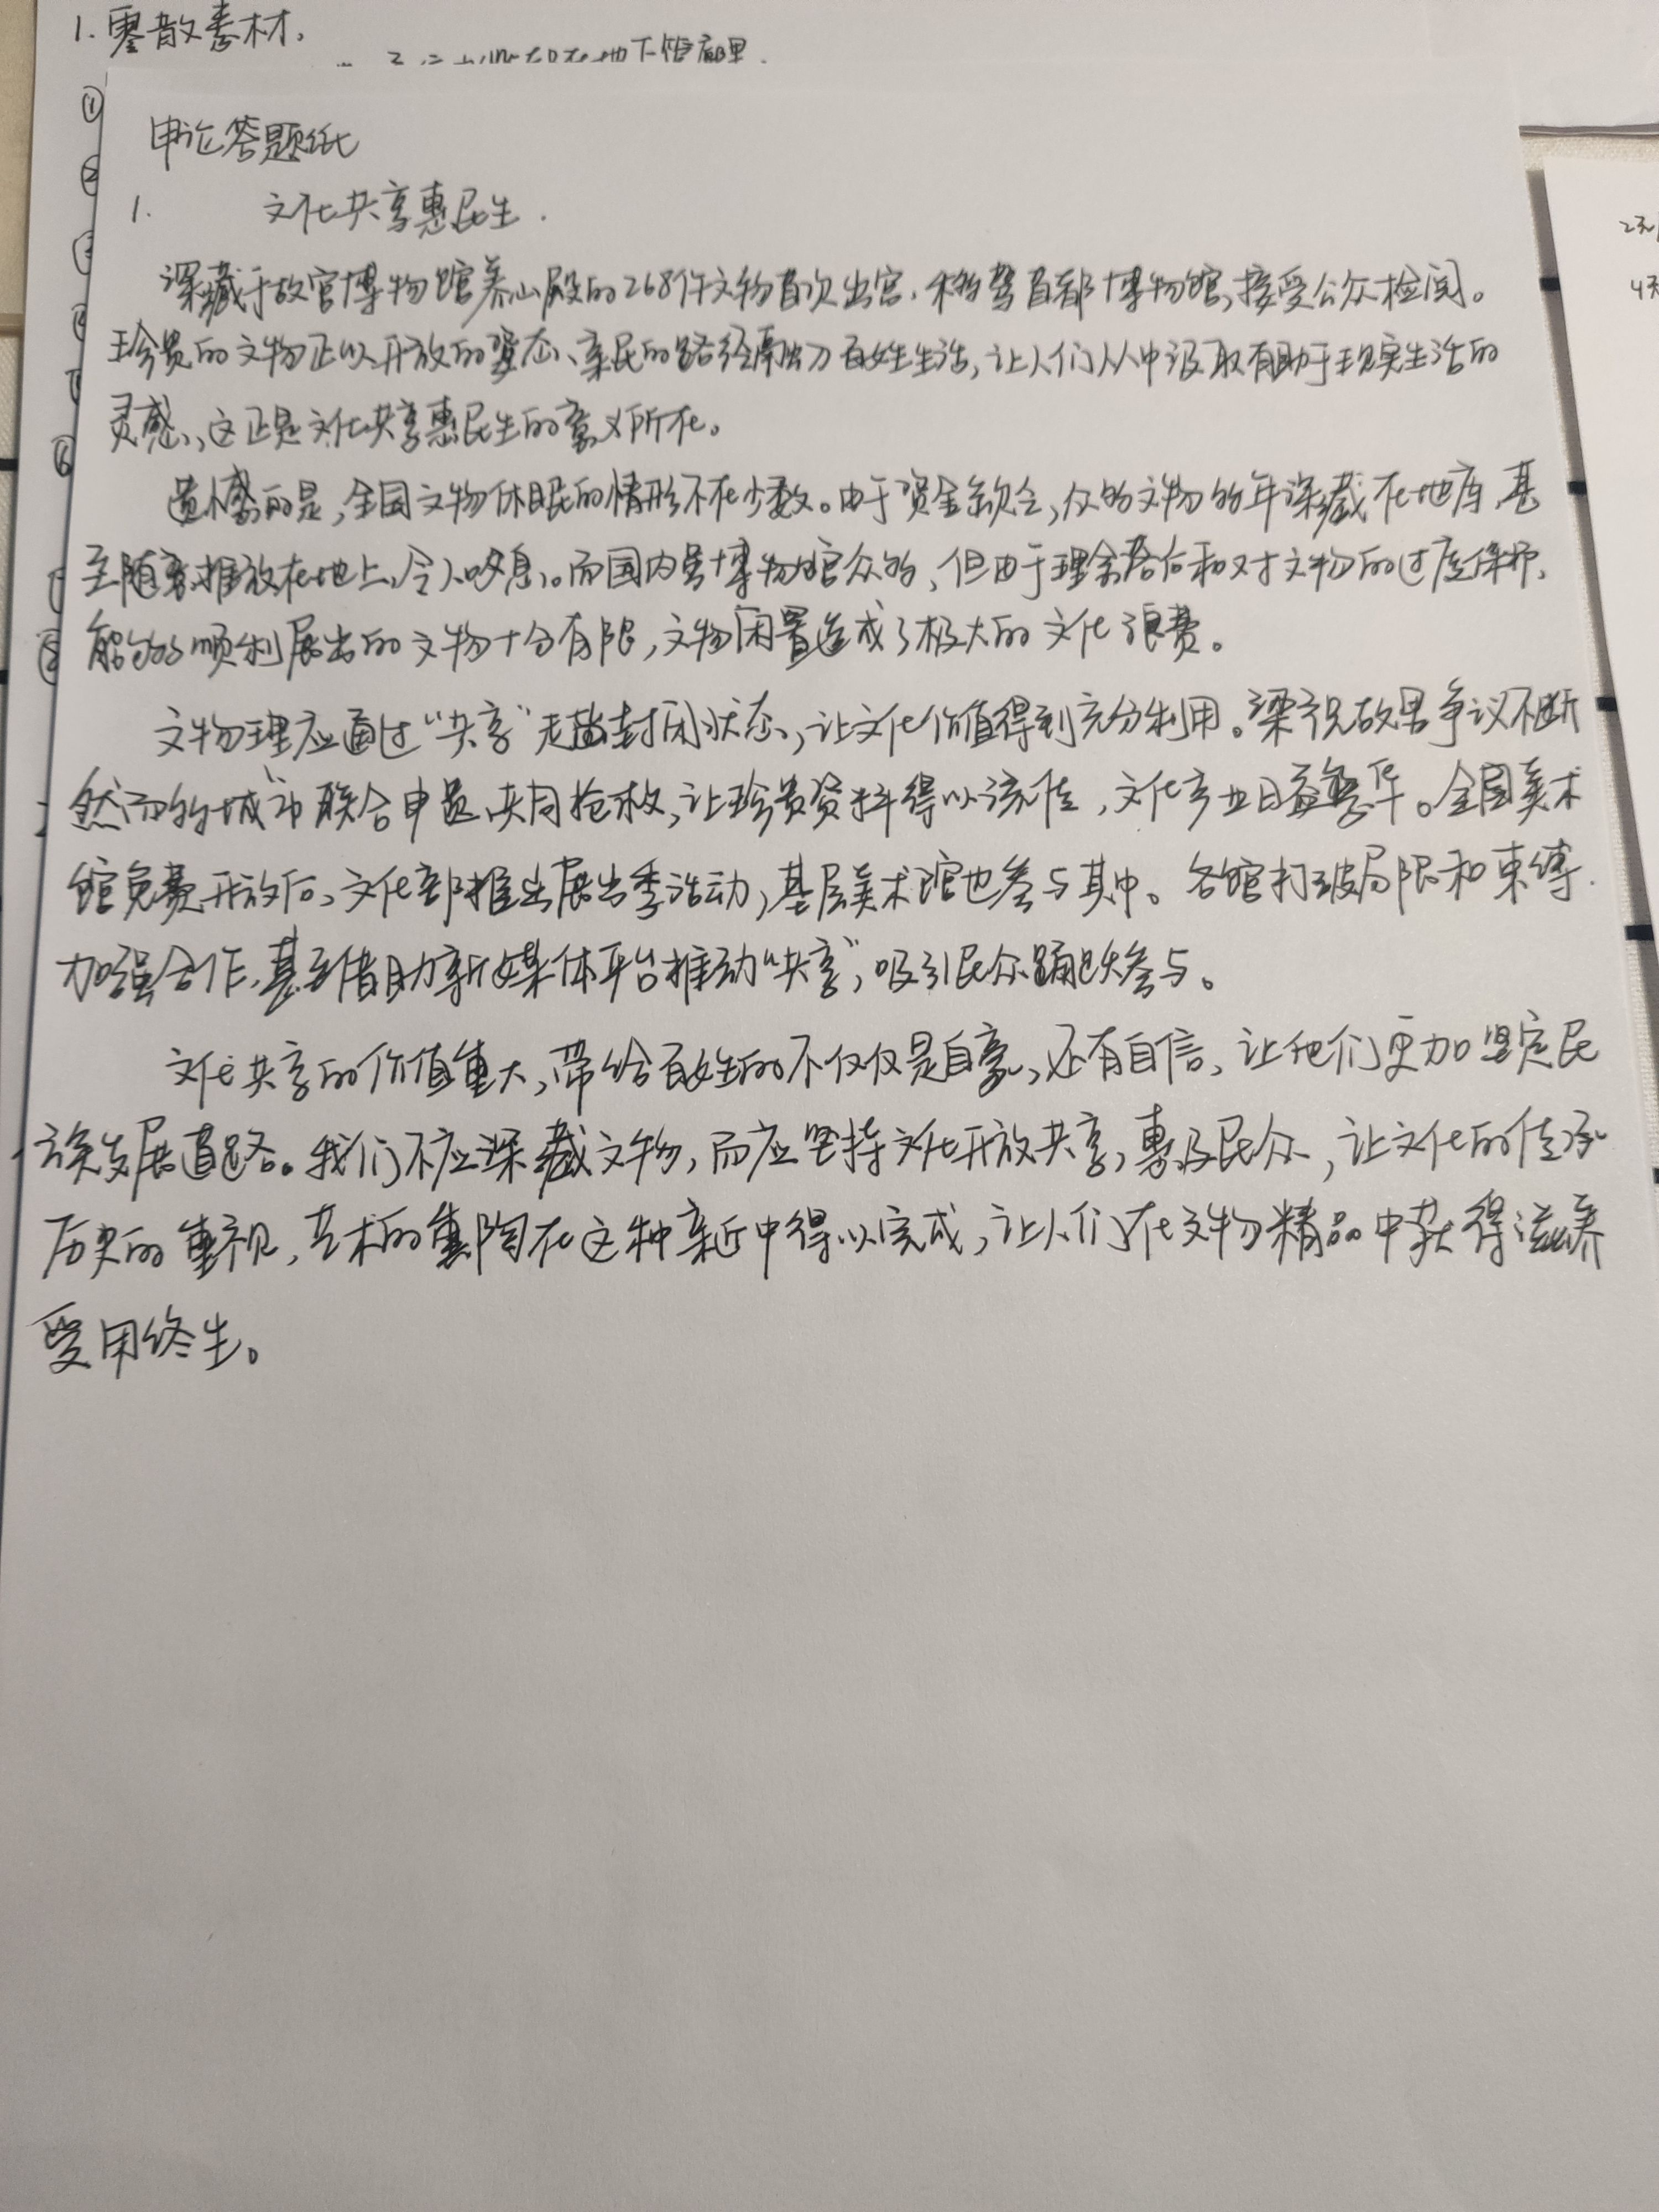 1. 零散素材.
地下管廊里.
①
申论答题纸
②
1. 文化共享惠民生.
深藏于故宫博物馆养心殿的268件文物首次出宫,移驾首都博物馆,接受公众检阅。
珍贵的文物正以开放的姿态、亲民的路径融入百姓生活,让人们从中汲取有助于现实生活的
灵感,这正是文化共享惠民生的意义所在。
⑥
遗憾的是,全国文物休眠的情形不在少数。由于资金欠缺,众多文物多年深藏在地库,甚
至随意堆放在地上,令人叹息。而国内虽博物馆众多,但由于理念落后和对文物的过度保护,
能够顺利展出的文物十分有限,文物闲置造成了极大的文化浪费。
文物理应通过“共享”走出封闭状态,让文化价值得到充分利用。梁祝故里争议不断
然而多城市联合申遗,共同抢救,让珍贵资料得以流传,文化产业日益繁华。全国美术
馆免费开放后,文化部推出展出季活动,基层美术馆也参与其中。各馆打破局限和束缚.
加强合作,甚至借助新媒体平台推动“共享”,吸引民众踊跃参与。
文化共享的价值重大,带给百姓的不仅仅是自豪,还有自信,让他们更加坚定民
族发展道路。我们不应深藏文物,而应坚持文化开放共享,惠及民众,让文化的传承
历史的重视,艺术的熏陶在这种亲近中得以完成,让人们在文物精品中获得滋养
受用终生。